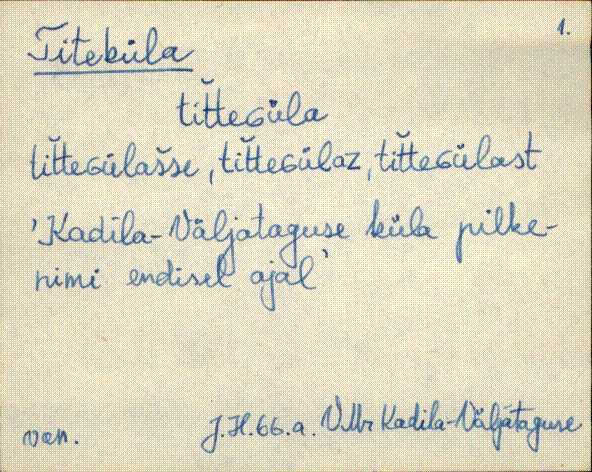 1.
Titeküla
tit̆teɢüla
tit̆teɢülašse, tit̆teɢülaz, tit̆teɢülast
'Kadila-Väljataguse küla pilke-
nimi endisel ajal'
van. J.H.66.a. VMr Kadila-Väljataguse